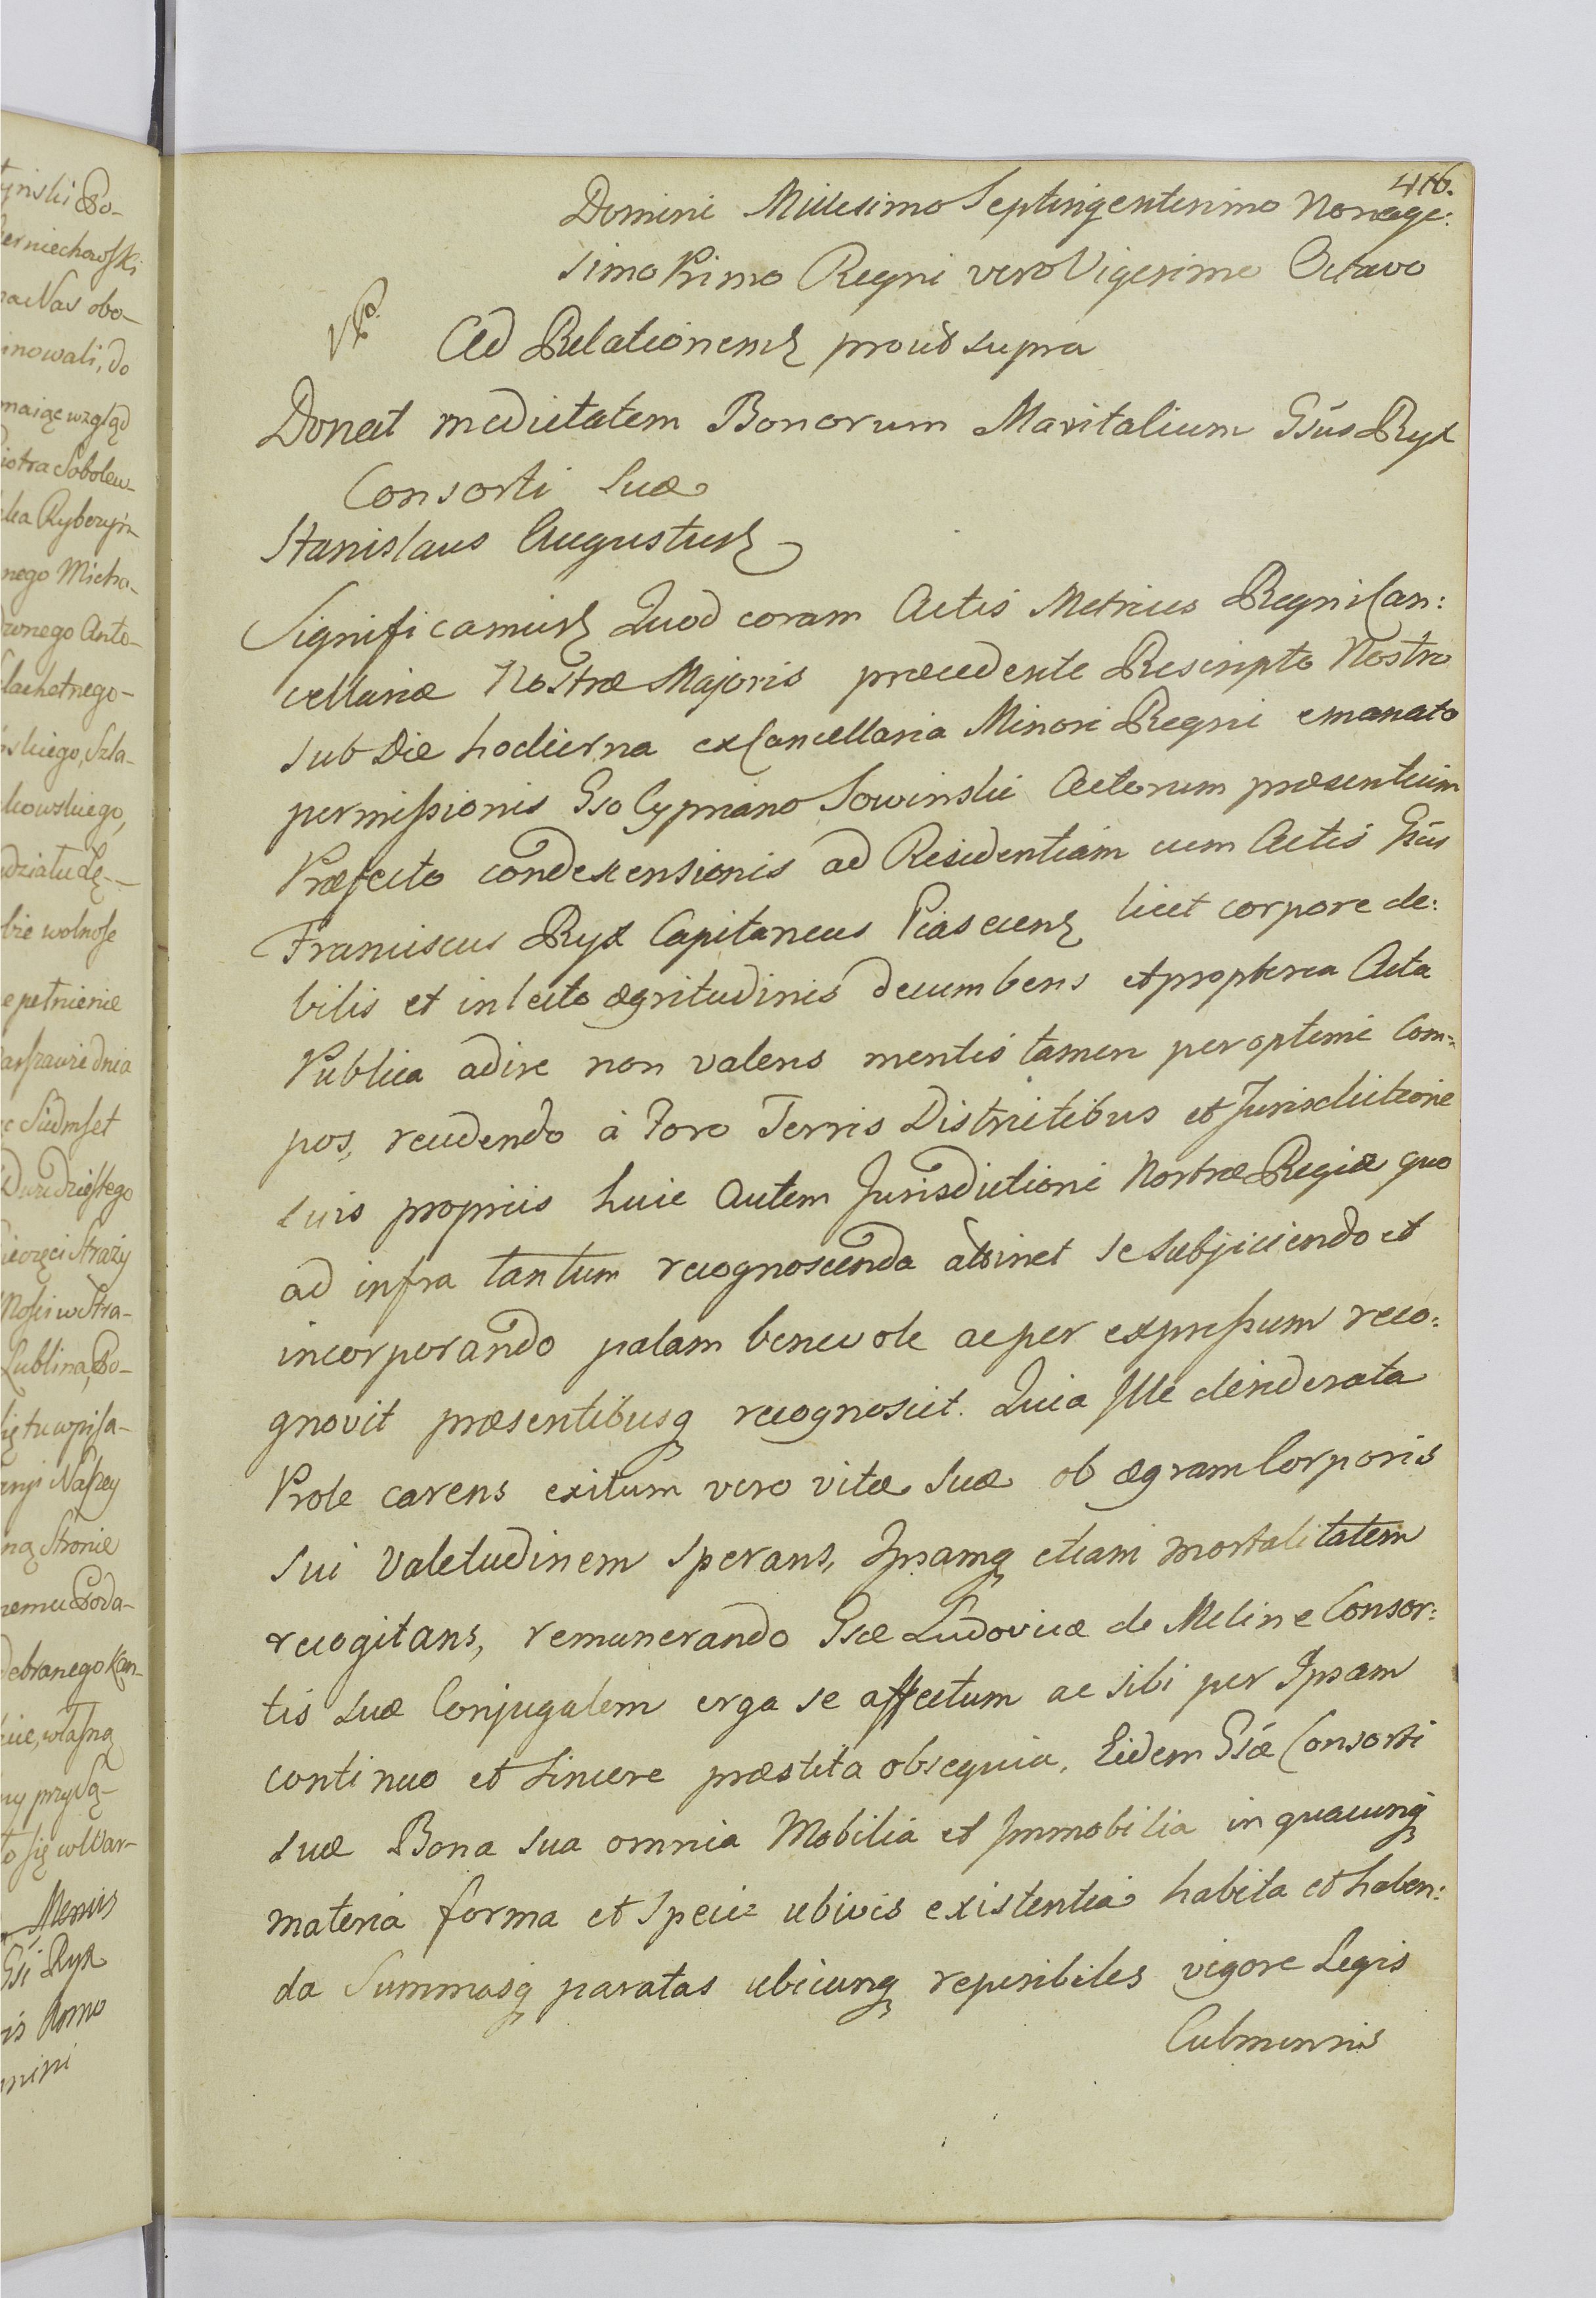 tyński Po-
czerniechowski
na Nas obo-
inowali, do
maiąc wzgląd
Piotra Sobolew-
cka Rybczyń-
nego Micha-
Anto-
Slachetnego-
skiego, Szla-
kowskiego,
bie wolnose
e pełnienie
Warszawie dnia
c Siedmset
Dwudziestego
Pieczęci Straży
Nosci w Stra-
Lublina, Po-
się tu wpisa-
Naszey
ną Stronie
remu Poda-
debranego Kan-
własną
ny przysą-
to się w War-
Mensis
Gsi Ryx
is Anno
mini
416.
Domini Millesimo Septingentesimo Nonage:
simo Primo Regni vero Vigesimo Octavo
Ad Relationem prout supra
Donat medietatem Bonorum Maritalium Gsus Ryx
Consorti Suæ
Stanislaus Augustus
Significamus Quod coram Actis Metrices Regni Can:
cellariæ Nostræ Majoris præcedente Rescripto Nostro
sub Die hodierna ex Cancellaria Minori Regni emanato
permissionis Gso Cypriano Sowinski Actorum præsentium
Præfecto condescensionis ad Residentiam cum Actis Gsus
Franciscus Ryx Capitaneus Piasecens licet corpore de:
bilis et in lecto ægritudinis decumbens et propterea Acta
Publica adire non valens mentis tamen per optime Com:
pos, recedendo à Foro Terris Districtibus et Jurisdictione
suis propriis huic autem Jurisdictioni Nostræ Regiæ quo
ad infra tantum recognoscenda attinet se subjiciendo et
incorporando palam benevole ac per expressum reco:
gnovit præsentibusq recognoscit. Quia Ille desiderata
Prole carens exitum vero vitæ suæ ob ægram Corporis
sui Valetudinem sperans, Ipsamq etiam mortalitatem
recogitans, remunerando Gsæ Ludovicæ de Meline Consor:
tis suæ Conjugalem erga se affectum ac sibi per Ipsam
continuo et sincere præstita obsequia, Eidem Gsæ Consorti
suæ Bona sua omnia Mobilia et Immobilia in quacunq
materia forma et Specie ubivis existentia habita et haben:
da Summasq paratas ubicunq reperibiles vigore Legis
Culmensis